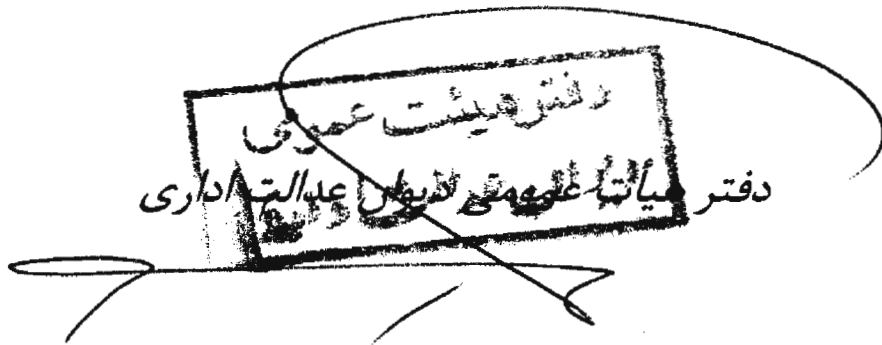 دفتر هیئت عمومی
دفتر هیأت عمومی دیوان عدالت اداری